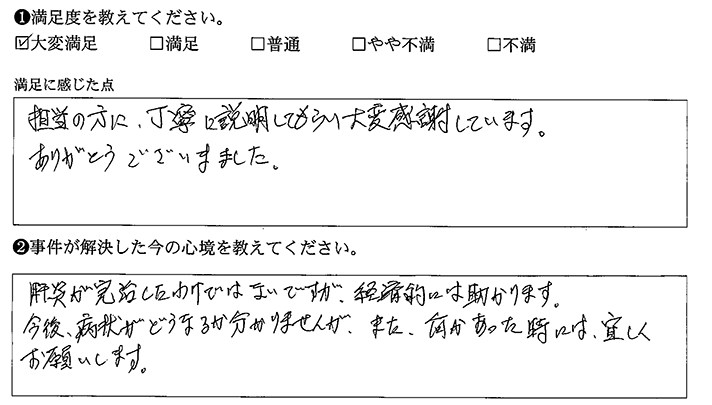 ❶満足度を教えてください。
☑大変満足 □満足 □普通 □やや不満 □不満
満足に感じた点
担当の方に、丁寧に説明してもらい大変感謝しています。
ありがとうございました。
❷事件が解決した今の心境を教えてください。
肝炎が完治したわけではないですが、経済的には助かります。
今後、病状がどうなるか分かりませんが、また、何かあった時には、宜しく
お願いします。